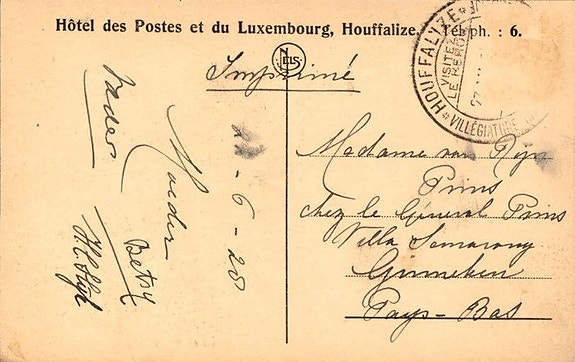 Hôtel des Postes et du Luxembourg, Houffalize. Téléph. : 6.
NELS
Imprimé
HOUFFALIZE
VISITEZ
VILLÉGIATURE
Vader
Moeder
Betsy
22 - 6 - 28
Madame van Rijn
Prins
chez le Général Prins
Villa Semarang
Ginneken
Pays-Bas